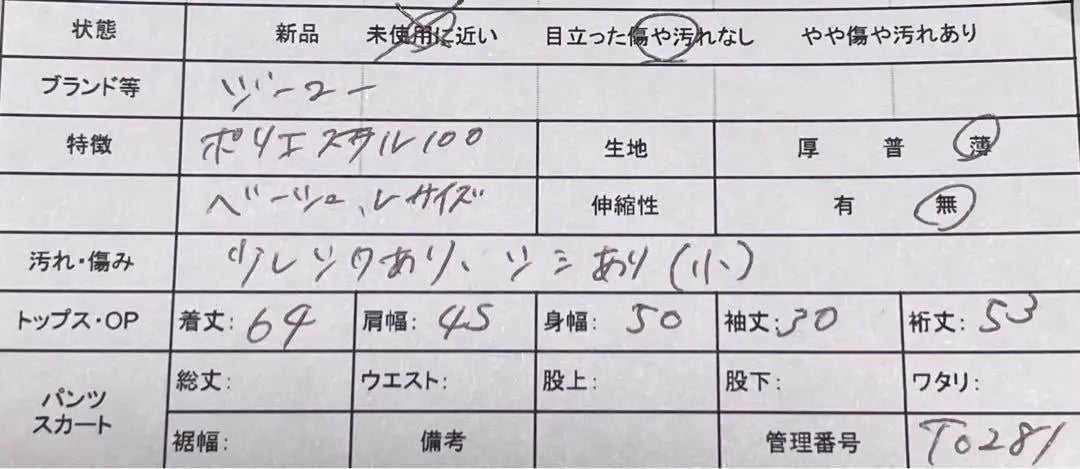 状態 新品 未使用に近い 目立った傷や汚れなし やや傷や汚れあり
ブランド等 ジーユー
特徴 ポリエステル100 生地 厚 普 薄
ベージュ、Lサイズ 伸縮性 有 無
汚れ・傷み 少しシワあり、シミあり(小)
トップス・OP 着丈:64 肩幅:45 身幅:50 袖丈:30 裄丈:53
パンツ スカート 総丈: ウエスト: 股上: 股下: ワタリ:
裾幅: 備考 管理番号 T0281